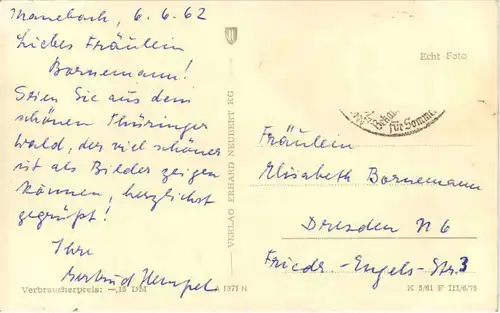 Manebach, 6.6.62
Liebes Fräulein
Bornemann!
Seien Sie aus dem
schönen Thüringer
Wald, der viel schöner
ist als Bilder zeigen
können, herzlichst
gegrüßt!
Ihre
Gertrud Hempel
Verbraucherpreis: —,15 DM
VERLAG ERHARD NEUBERT KG
A 1371 N
Echt Foto
für Sommer
Fräulein
Elisabeth Bornemann
Dresden N 6
Friedr.-Engels-Str. 3
K 5/61 F III/6/75